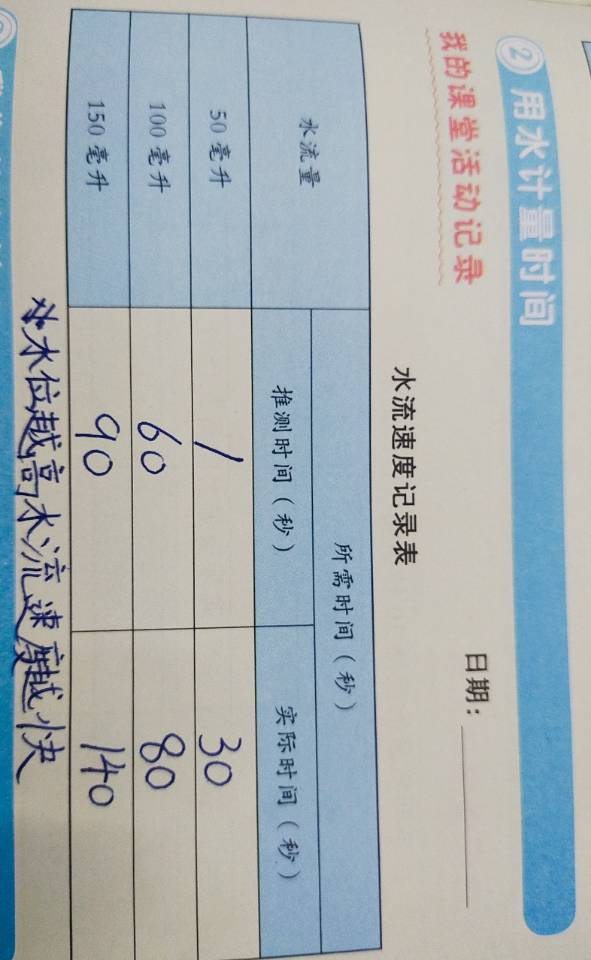 ② 用水计量时间
我的课堂活动记录
日期：
水流速度记录表
水流量
所需时间（秒）
推测时间（秒）
实际时间（秒）
50毫升 / 30
100毫升 60 80
150毫升 90 140
水位越高水流速度越快